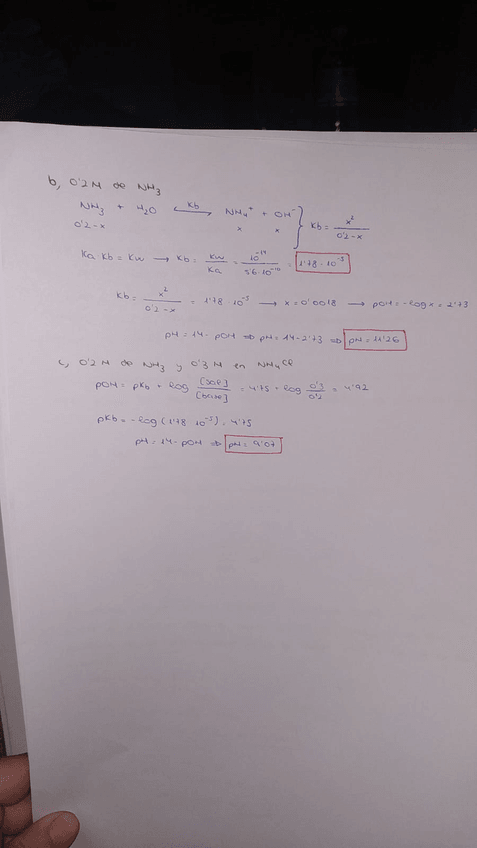 b, 0'2 M de NH₃
NH₃ + H₂O ⇌ Kb NH₄⁺ + OH⁻ } Kb = x²/(0'2-x)
0'2-x x x
Ka · Kb = Kw → Kb = Kw/Ka = 10⁻¹⁴/5'6·10⁻¹⁰ = 1'78·10⁻⁵
Kb = x²/(0'2-x) = 1'78·10⁻⁵ → x = 0'0018 → pOH = -log x = 2'73
pH = 14 - pOH ⇒ pH = 14 - 2'73 ⇒ pH = 11'26
c, 0'2 M de NH₃ y 0'3 M en NH₄Cl
pOH = pKb + log [sal]/[base] = 4'75 + log 0'3/0'2 = 4'92
pKb = -log (1'78·10⁻⁵) = 4'75
pH = 14 - pOH ⇒ pH = 9'07